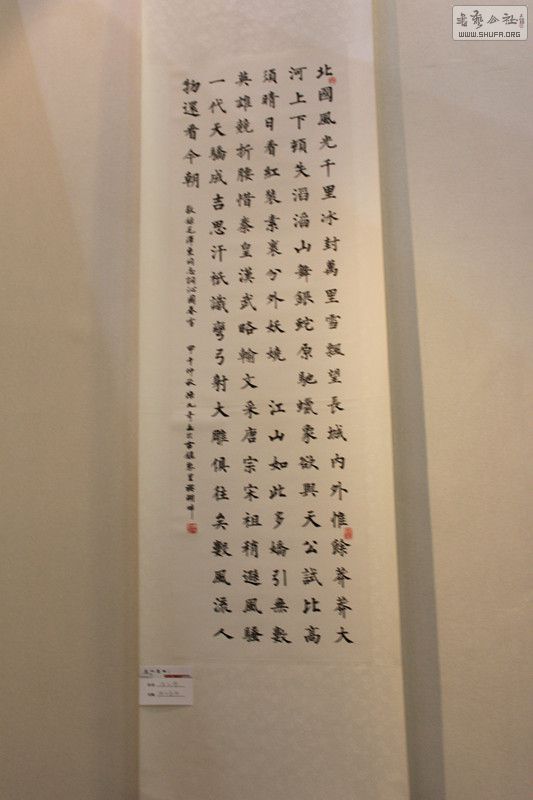 北國風光千里冰封萬里雪飄望長城內外惟餘莽莽大
河上下頓失滔滔山舞銀蛇原馳蠟象欲與天公試比高
須晴日看紅裝素裹分外妖嬈 江山如此多嬌引無數
英雄競折腰惜秦皇漢武略輸文采唐宗宋祖稍遜風騷
一代天驕成吉思汗祇識彎弓射大雕俱往矣數風流人
物還看今朝 敬錄毛澤東同志詞沁園春雪 甲午仲秋
書藝公社
WWW.SHUFA.ORG